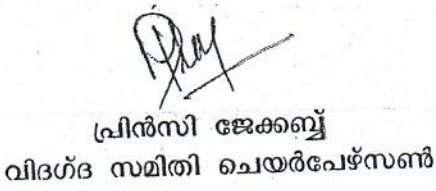 പ്രിൻസി ജേക്കബ്ബ്
വിദഗ്ദ സമിതി ചെയർപേഴ്സൺ